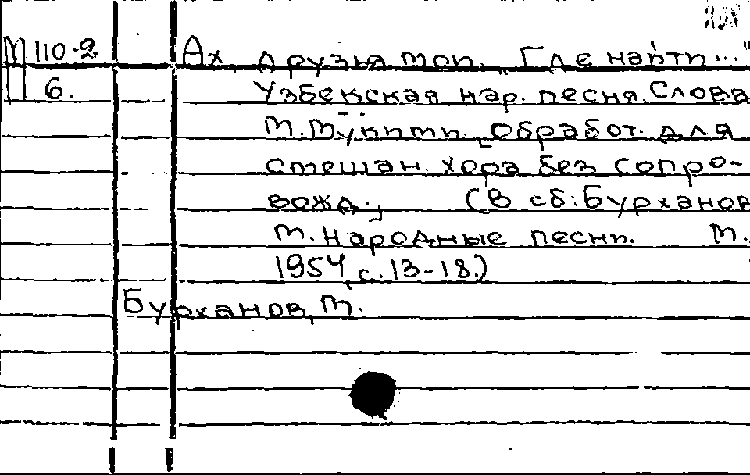 М 110-2 Ах, друзья мои. „Где найти..."
П 6. Узбекская нар. песня. Слова
М. Муйини. Обработ. для
смешан. хора без сопро-
вожд., (В сб: Бурханов
М. Народные песни. М.
1954, с. 13-18.)
Бурханов, М.